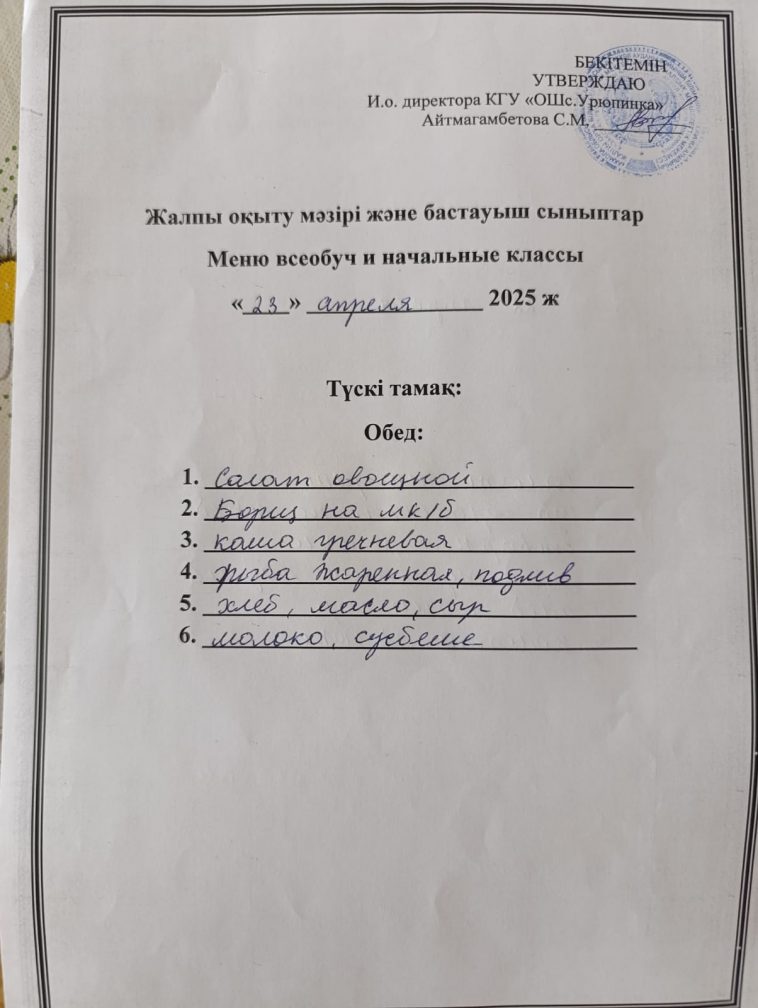 БЕКІТЕМІН
УТВЕРЖДАЮ
И.о. директора КГУ «ОШс.Урюпинка»
Айтмагамбетова С.М.
Жалпы оқыту мәзірі және бастауыш сыныптар
Меню всеобуч и начальные классы
«23» апреля 2025 ж
Түскі тамақ:
Обед:
1. Салат овощной
2. Борщ на мк/б
3. каша гречневая
4. рыба жаренная, подлив
5. хлеб, масло, сыр
6. молоко,